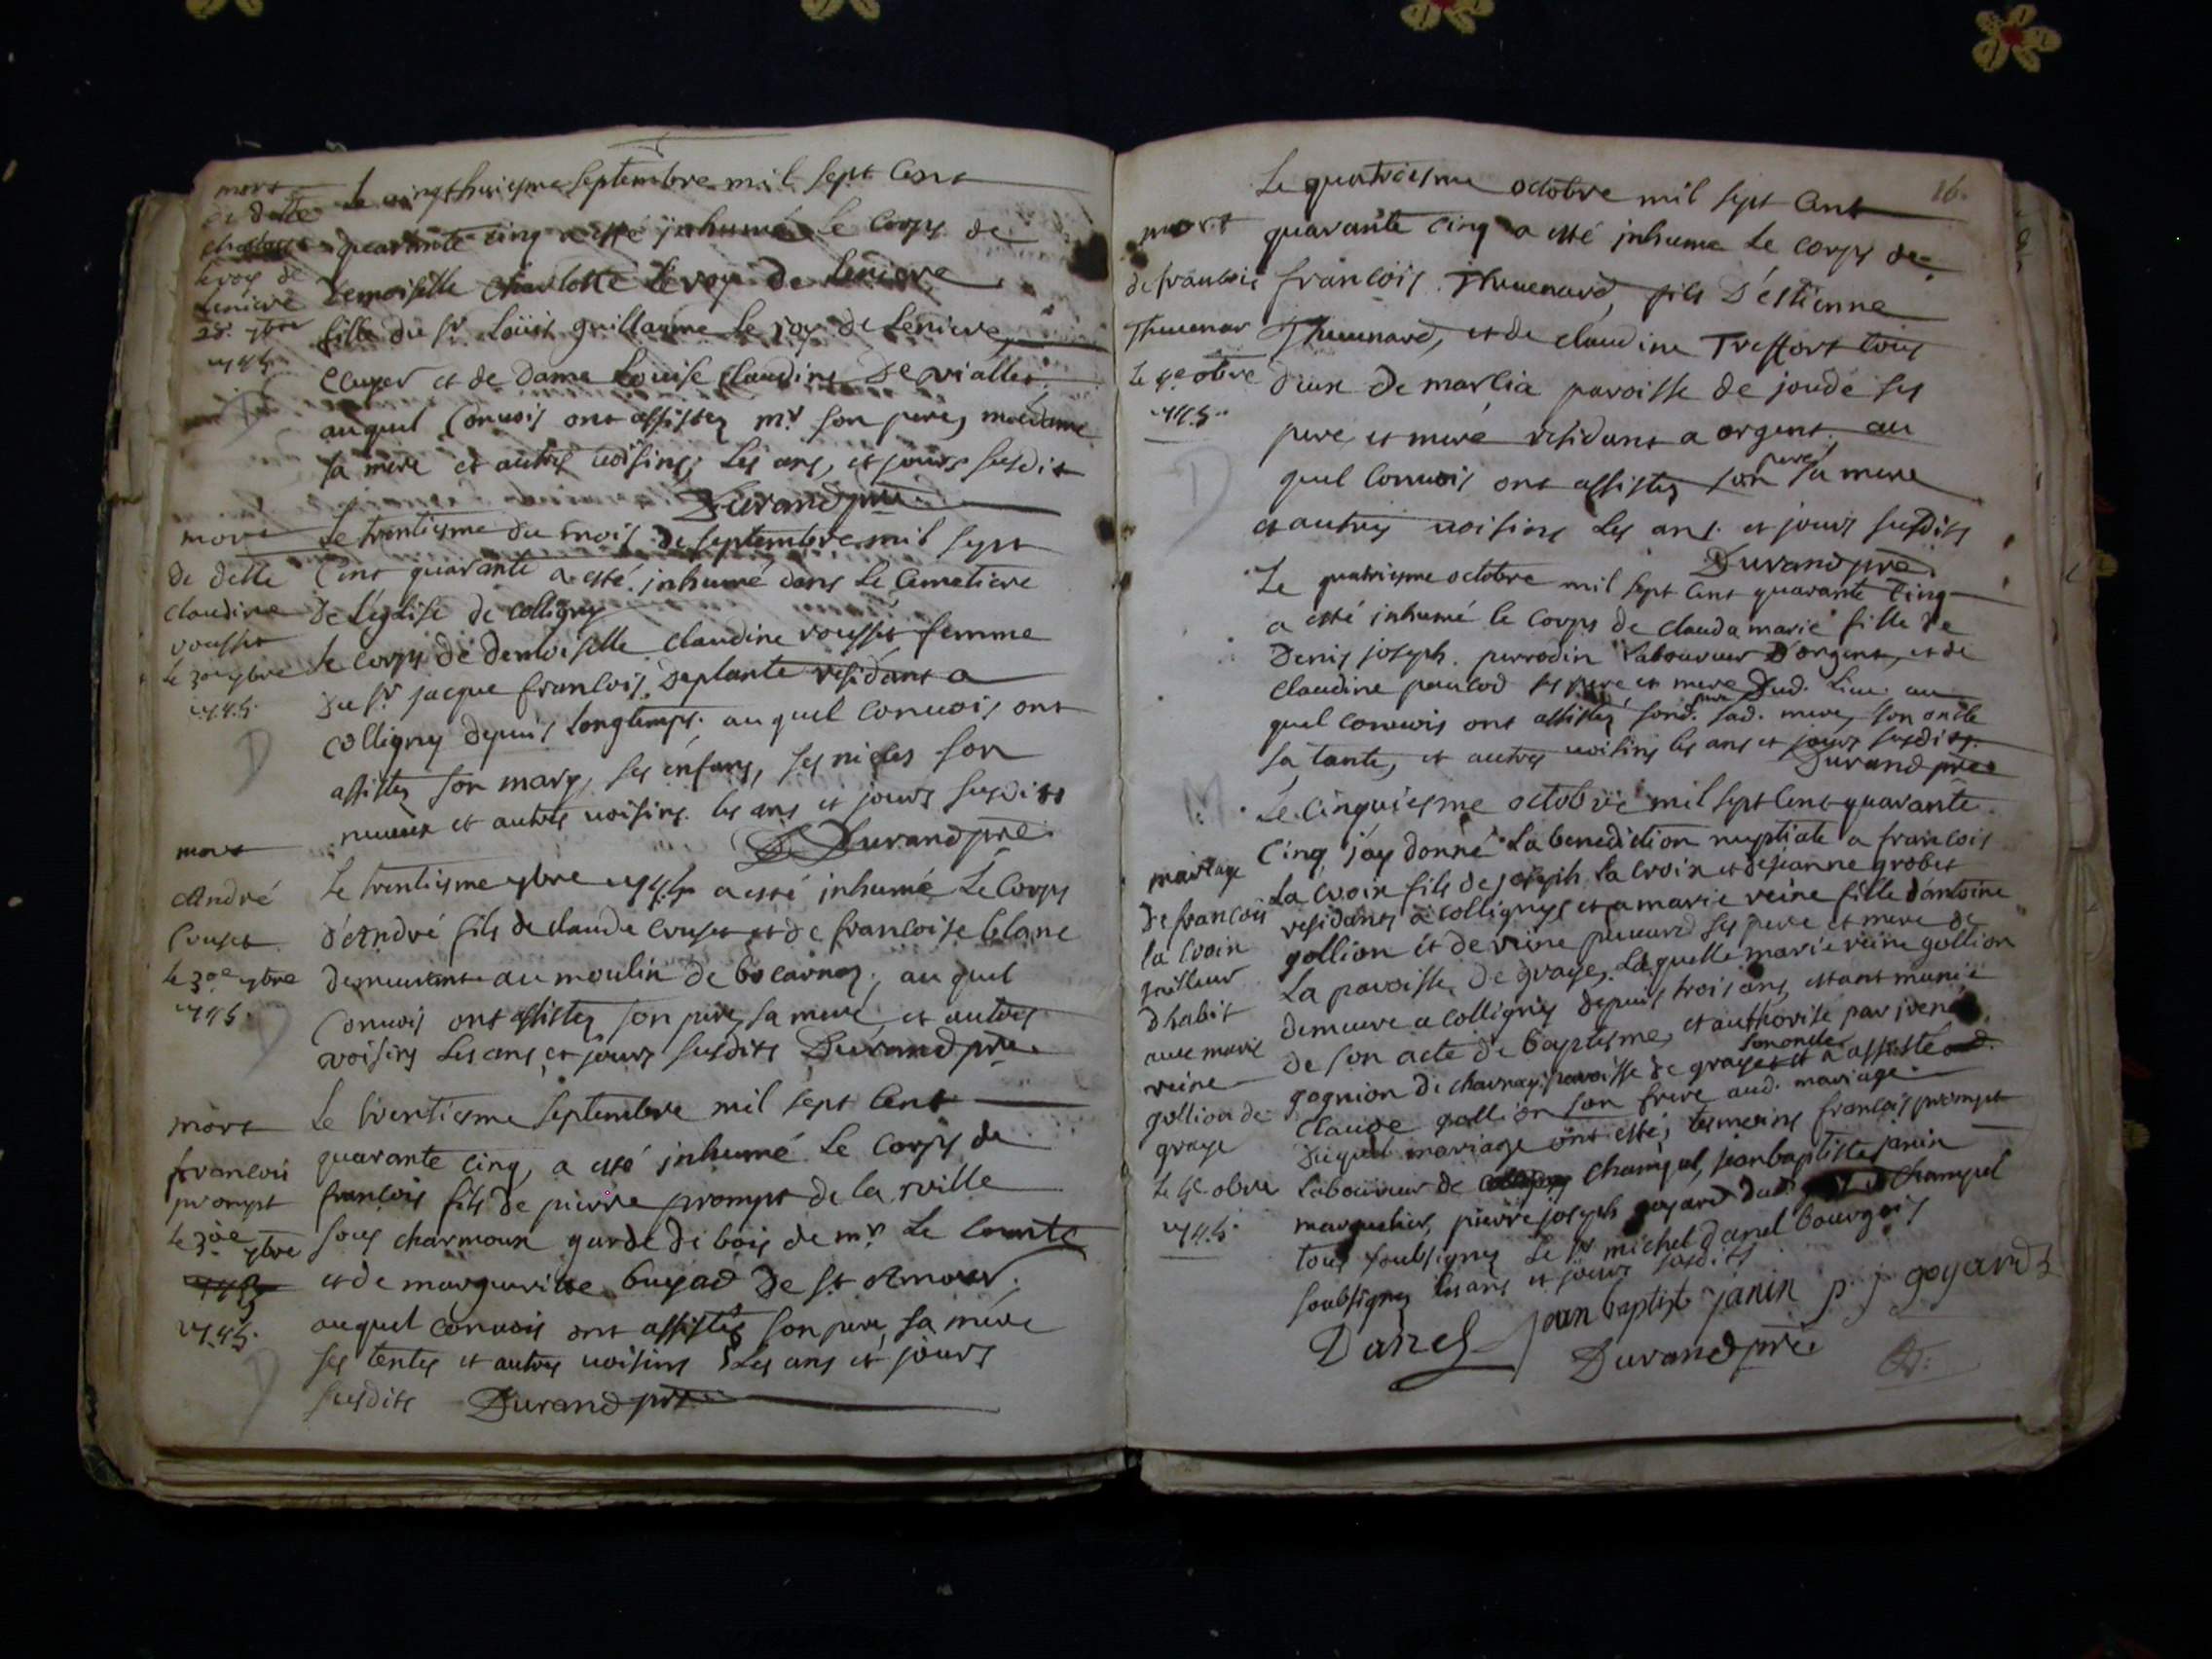 mort
de delle
charlotte
leroy de
Leniere
28e 7bre
1745
Le vingt huiesme septembre mil sept Cent
quarante cinq a esté jnhumé le Corps de
Demoiselle Charlotte Le roy de Leniere
fille du Sr. Loüis guillaume le roy de Leniere,
Ecuyer et de Dame Louise Claudine De vialler.
auquel Conuois ont assistez mr. son pere, madame
sa mere et autres uoisins; Les ans, et jours susdit
Durand pre
mort
de delle
claudine
rousset
Le 30e 7bre
1745.
Le trentiesme du mois de septembre mil sept
Cent quarante a esté jnhumé dans Le Cimetiere
de L'eglise de Colligny
le corps de demoiselle claudine rousset femme
du Sr. jacque francois Deplante residant a
Colligny depuis Longtemps. au quel Conuois ont
assistez son mary, ses enfans, ses nieces son
nueux et autres uoisins. les ans et jours susdits
Durand pre
mort
André
Couset
le 30e 7bre
1745.
Le trentiesme 7bre 1745 a esté jnhumé Le Corps
d'André fils de claude Couset et de francoise blanc
demeurant au moulin de bocarnoz, au quel
Conuois ont assistez son pere, sa mere, et autres
voisins Les ans, et jours susdits Durand pre.
mort
francois
prompt
le 30e 7bre
1745.
Le trentiesme septembre mil sept Cent
quarante cinq, a esté jnhumé Le Corps de
francois fils de pierre prompt de la ville
sous charmoux garde de bois de mr. Le Comte
et de margueritte buyad de St Amour.
auquel conuois ont assistéz son pere, sa mére
ses tentes et autres uoisins Les ans et jours
susdits Durand pre
16.
mort
de francois
Thuuenar
le 4e obre
1745.
Le quatriesme octobre mil sept Cent
quarante Cinq a esté jnhumé Le corps de
francois Thuuenard, fils D'estienne
Thuuenard, et de claudine Treffort tous
deux de marlia paroisse de joude ses
pere et mere residant a argent. au
quel Conuois ont assistez son pere sa mere
et autres uoisins Les ans. et jours susdits
Durand pre.
Le quatriesme octobre mil sept Cent quarante Cinq
a esté jnhumé le Corps de clauda marie fille de
Denis joseph perrodin Laboureur D'argent, et de
Claudine paucod ses pere et mere Dud. Lieu. au
quel conuois ont assistez sond. pere sad. mere, son oncle
sa tante, et autres uoisins les ans et jours susdits.
Durand pre
mariage
de francois
la Croix
tailleur
dhabit
auec marie
reine
gollion de
graye
Le 5e obre
1745.
Le Cinquiesme octobre mil sept Cent quarante
Cinq j'ay donné La benediction nuptiale a francois
La Croix fils de joseph la Croix et de jeanne grobet
residants a Colligny et a marie reine fille d'antoine
gollion et de reine ses pere et mere de
La paroisse De graye, Laquelle marie reine gollion
demeure a Colligny depuis trois ans, estant munie
de son acte de baptesme, et authorisé par
gagnion de charnay paroisse de graye son oncle a assisté
Claude gollion son frere aud. mariage.
Duquel mariage ont esté; temoins francois prompt
Laboureur de champel, jean baptiste janin
marguelier, pierre joseph goyard dud. champel
tous soubsignez Le Sr michel Danel bourgois
soubsignez les ans et jours susdits
Danel jean baptiste janin p. j. goyard
Durand pre